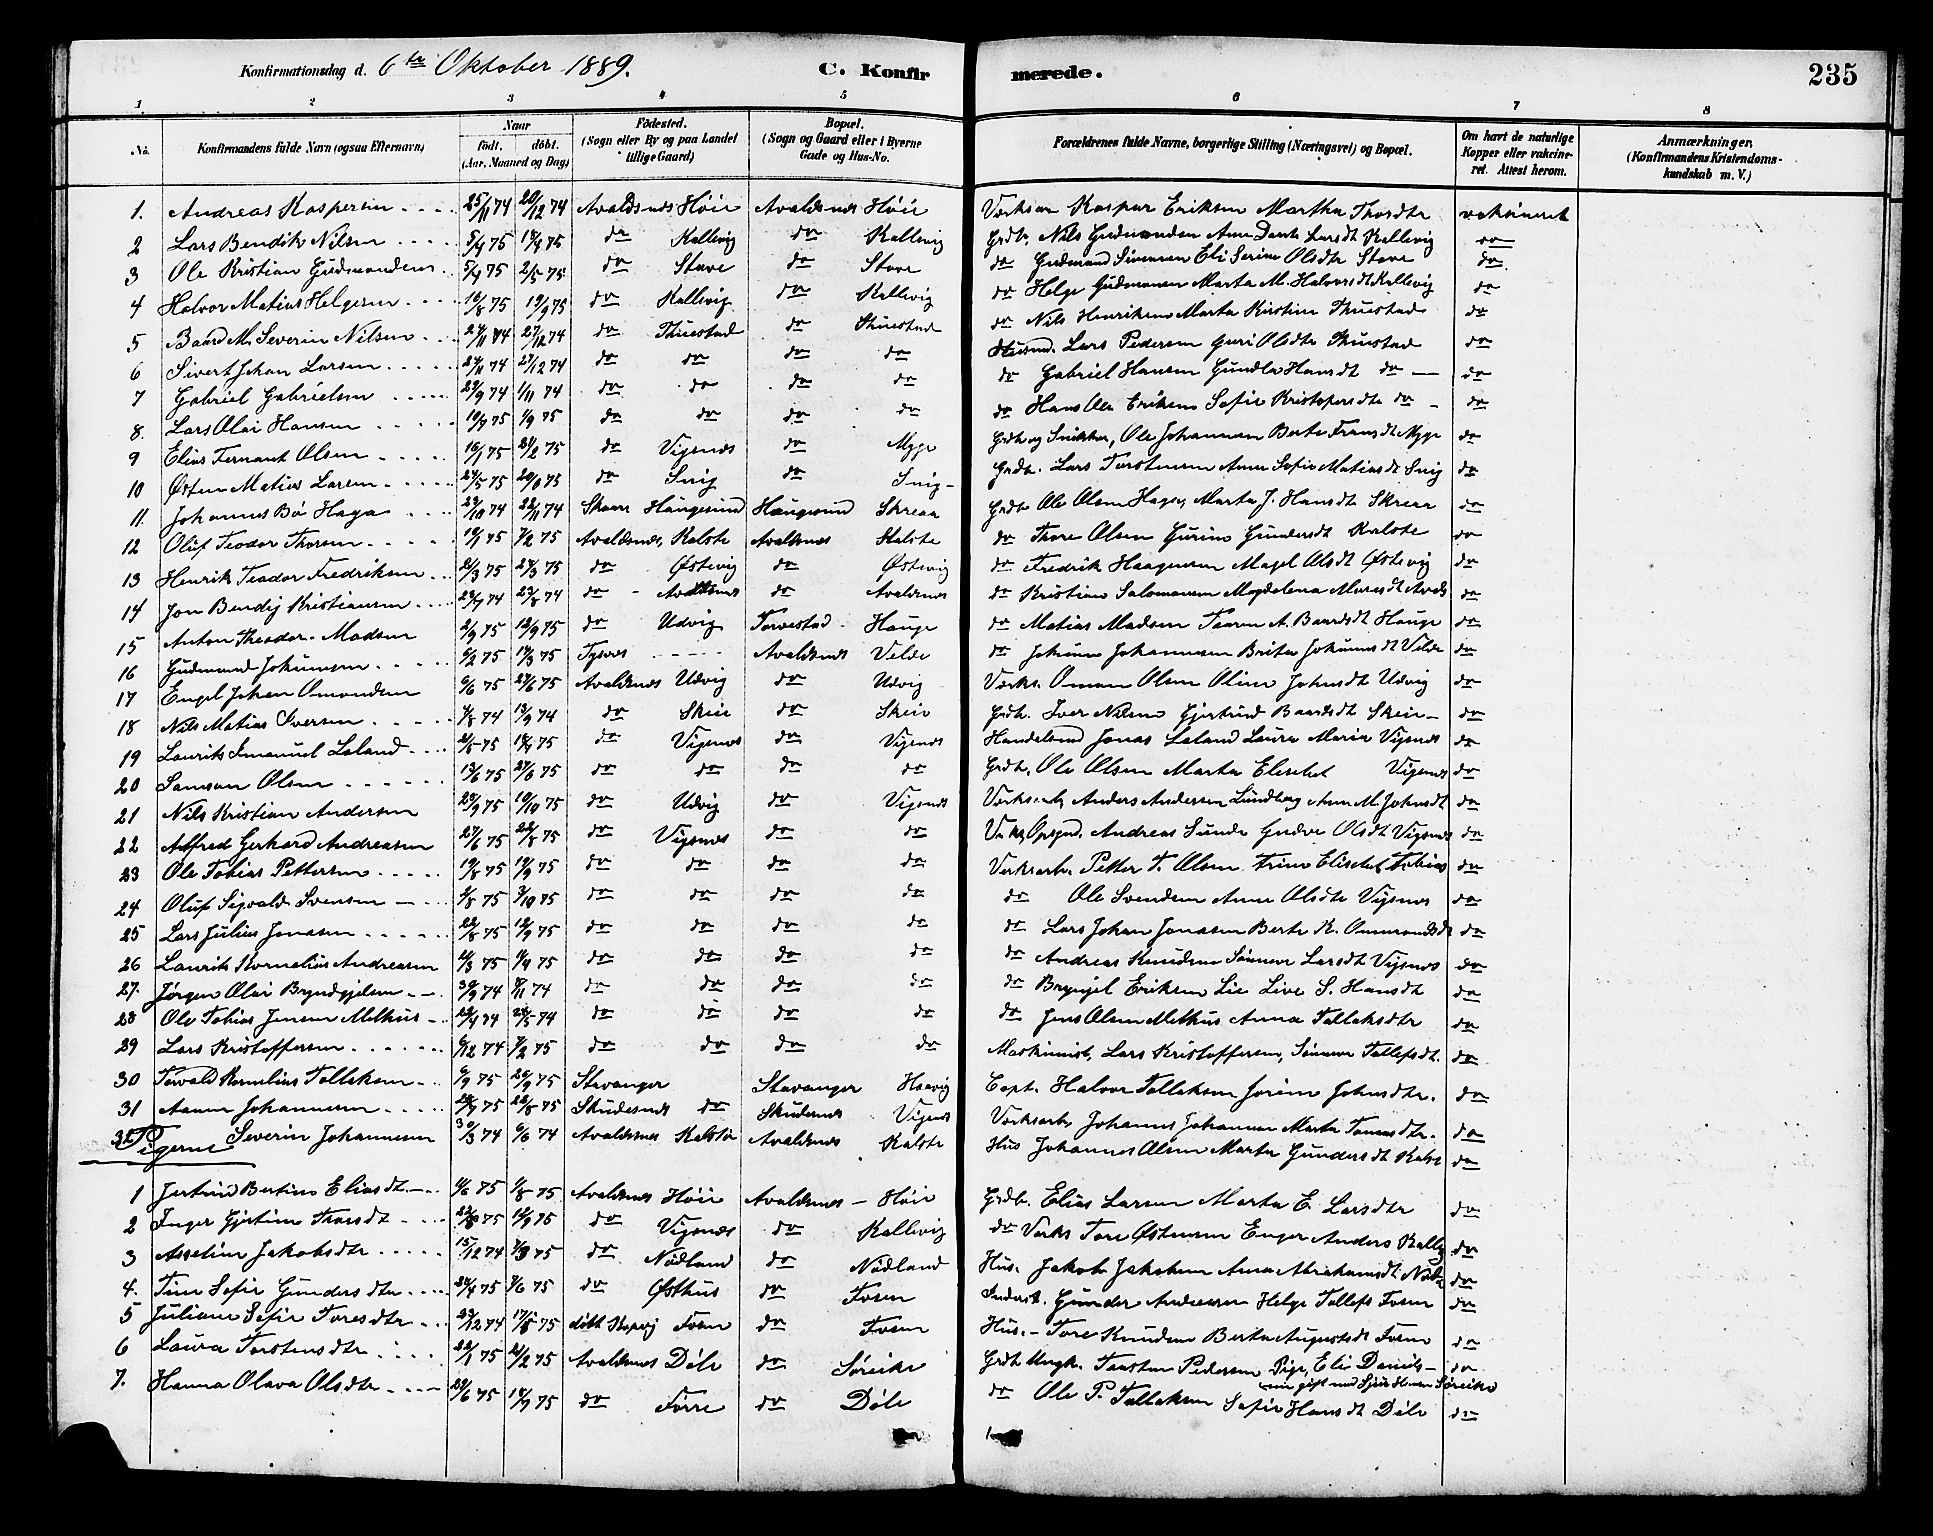 Konfirmationsdag d. 6te Oktober 1889. C. Konfirmerede. 235
1 2 3 4 5 6 7 8
No. Konfirmandens fulde Navn (ogsaa Efternavn) Naar født. døbt. (Aar, Maaned og Dag) Fødested. (Sogn eller By og paa Landet tillige Gaard) Bopæl. (Sogn og Gaard eller i Byerne Gade og Hus-No. Forældrenes fulde Navne, borgerlige Stilling (Næringsvei) og Bopæl. Om havt de naturlige Kopper eller vakcineret. Attest herom. Anmærkninger. (Konfirmandens Kristendomskundskab m. V.)
1. Andreas Kaspersen 25/11 74 26/12 74 Avaldsnes Høie Avaldsnes Høie Kaspar Eriksen Martha Thorsdtr vaksineret
2 Lars Bendik Nilsen 5/4 75 18/4 75 do Kallevig do Kallevig Grdb. Nils Gudmundsen Anne Larsdt Kallevig do
3 Ole Kristian Gudmundsen 5/4 75 2/5 75 do Stave do Stave do Gudmund Simensen Eli Serine Olsdtr Stave do
4 Halvor Matias Helgesen 16/8 75 19/9 75 do Kallevig do Kallevig do Helge Gudmunsen Marta M. Halvorsdt Kallevig do
5 Baard M. Severin Nilsen 24/11 74 27/12 74 do Thuestad do Thuestad do Nils Henriksen Marta Kristine Thuestad do
6 Sivert Johan Larsen 24/11 74 27/12 74 do do do do Husmd. Lars Pedersen Guri Olsdtr Thuestad do
7 Gabriel Gabrielsen 29/9 74 1/11 74 do do do do do Gabriel Hansen Gundla Hansdt do do
8. Lars Olai Hansen 10/7 75 1/9 75 do do do do do Hans Ole Eriksen Sofie Kristofersdtr do do
9 Elias Fernant Olsen 16/1 75 21/2 75 do Vigsnes do Myge Grdb og Snikker, Ole Johannesen Berte Fransdt Myge do
10 Østen Matias Larsen 24/5 75 20/6 75 do Snig do Snig Grdb. Lars Torstensen Anne Sofie Matiasdt Snig do
11. Johannes Bø Haga 23/10 74 22/11 74 Skaare Haugesund Haugesund Skreaa Grdb Ole Olsen Haga, Marta J. Hansdt Skreaa do
12 Oluf Teodor Thorsen 10/1 75 7/2 75 Avaldsnes, Kalstø Avaldsnes Kalstø do Thore Olsen Gurine Gundersdt Kalstø do
13 Henrik Teodor Fredriksen 21/3 75 29/3 75 do Østevig do Østevig do Fredrik Haagensen Magel Olsdt Østevig do
14 Jon Bendig Kristiansen 23/7 74 23/8 74 do Avaldsnes do Avaldsnes do Kristian Salomonsen Magdelena do
15 Anton Theodor Madsen 2/9 75 12/9 75 do Udvig Torvestad Hauge do Matias Madsen Taaren A. Baardsdt Hauge do
16 Gudmund Johannesen 6/2 75 14/3 75 Tysvær Avaldsnes Velde do Johannes Johannesen Brita Johannesdt Velde do
17 Engel Johan Omundsen 6/6 75 27/6 75 Avaldsnes Udvig do Udvig Værks. Oman Olsen Oline Johnsdt Udvig do
18 Nils Matias Iversen 7/8 74 13/9 74 do Skeie do Skeie Grdb. Iver Nilsen Gjertrud Baardsdt Skeie do
19 Laurits Imanuel Laland 2/5 75 18/7 75 do Vigsnes do Vigsnes Handelsmd Jonas Laland Laura Maria Vigsnes do
20 Samson Olsen 13/6 75 27/6 75 do do do do Grdb. Ole Olsen Marta Elisebet Vigsnes do
21 Nils Kristian Andersen 25/9 75 10/10 75 do Udvig do Vigsnes Værksarb. Anders Andersen Lundberg Anne M. Johnsdt do
22 Alfred Gerhard Andreasen 27/6 75 22/8 75 do Vigsnes do do Værks Opsynd. Andreas Sunde Gudve Olsdt Vigsnes do
23 Ole Tobias Pettersen 19/8 75 19/9 75 do do do do Værksarb. Petter T. Olsen Trine Elisebet Tobias do
24 Oluf Sigvald Svensen 2/8 75 3/10 75 do do do do do Ole Svendsen Anne Olsdtr Vigsnes do
25 Lars Julius Jonasen 22/8 75 12/9 75 do do do do do Lars Johan Jonasen Berte K. Ommundsdt do
26 Laurits Kornelius Andreasen 11/3 75 11/4 75 do do do do do Andreas Knudsen Sønneve Larsdt Vigsnes do
27. Jørgen Olai Bryndgjelsen 30/9 74 8/11 74 do do do do do Brynjel Eriksen Lie Live S. Hansdt do
28 Ole Tobias Jensen Melhus 22/4 74 25/5 74 do do do do do Jens Olsen Melhus Anna Tollaksdtr do
29 Lars Kristoffersen 6/12 74 7/2 75 do do do do Maskinist, Lars Kristoffersen, Sønneve Tollefsdt. do
30 Torvald Kornelius Tollaksen 6/9 75 26/9 75 Stavanger Stavanger Haavig Capt. Halvor Tollaksen Jorine Johnsdtr. do
31 Aanen Johannesen 28/7 75 22/8 75 Skudesnes do Skudesnes Vigsnes Værksarb. Johannes Johannesen Marta do
32 Severin Johannesen 30/3 74 6/6 74 Avaldsnes Kalstø Avaldsnes Kalstø Hus Johannes Olsen Marta Gundersdt do
Pigerne
1 Jertrud Bertine Eliasdt 4/6 75 1/8 75 Avaldsnes Høie Avaldsnes Høie Grdb. Elias Larsen Marta E. Larsdtr do
2 Inger Gjertine Thorsdt 75 12/9 75 do Vigsnes do Kallevig do Værks Tore Østensen Enger Anders do
3 Asseline Jakobsdtr 15/12 74 75 do Nødland do Nødland Hus. Jakob Jakobsen Anna Abrahamsdt do
4. Tine Sofie Gundersdtr 24/4 75 7/6 75 do Østhus do Fosen Gunder Andersen Helge Tollefs Fosen do
5 Juliane Sofie Toresdtr 23/12 74 75 døbt Kopervig Fosen do Fosen Hus. Tore Knudsen Berta Augustsdt Fosen do
6 Laura Torstensdtr 22/1 75 21/2 75 Avaldsnes Døle do Søreike Grdb Ungk. Torsten Pedersen Pige, Elie Daniels do
nu gift med Sjur Hansen Søreike
7. Hanna Olava Olsdtr 29/6 75 18/7 75 do Førre do Døle do Ole P. Tollaksen Sofie Hansdt Døle do